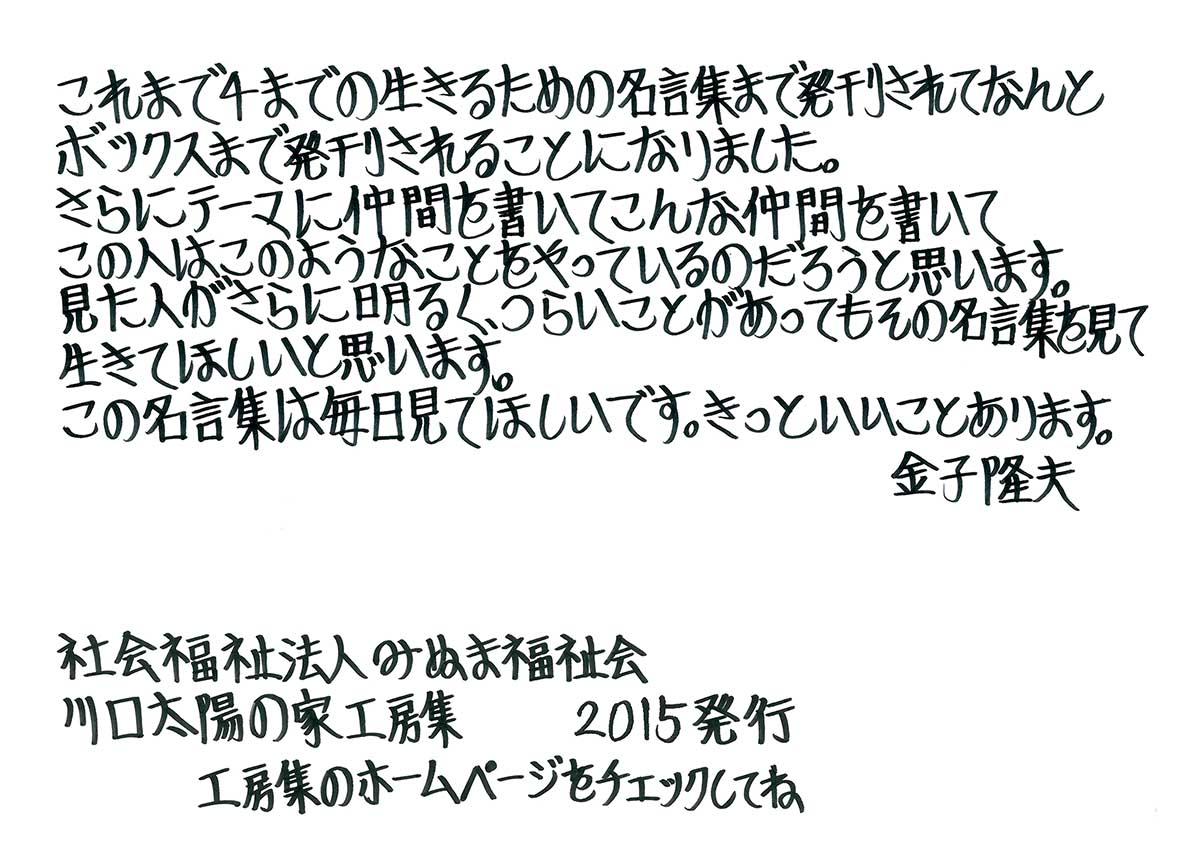 これまで4までの生きるための名言集まで発刊されてなんと
ボックスまで発刊されることになりました。
さらにテーマに仲間を書いてこんな仲間を書いて
この人は、このようなことをやっているのだろうと思います。
見た人がさらに明るく、つらいことがあってもその名言集を見て
生きてほしいと思います。
この名言集は毎日見てほしいです。きっといいことあります。
金子隆夫
社会福祉法人みぬま福祉会
川口太陽の家工房集 2015発行
工房集のホームページをチェックしてね